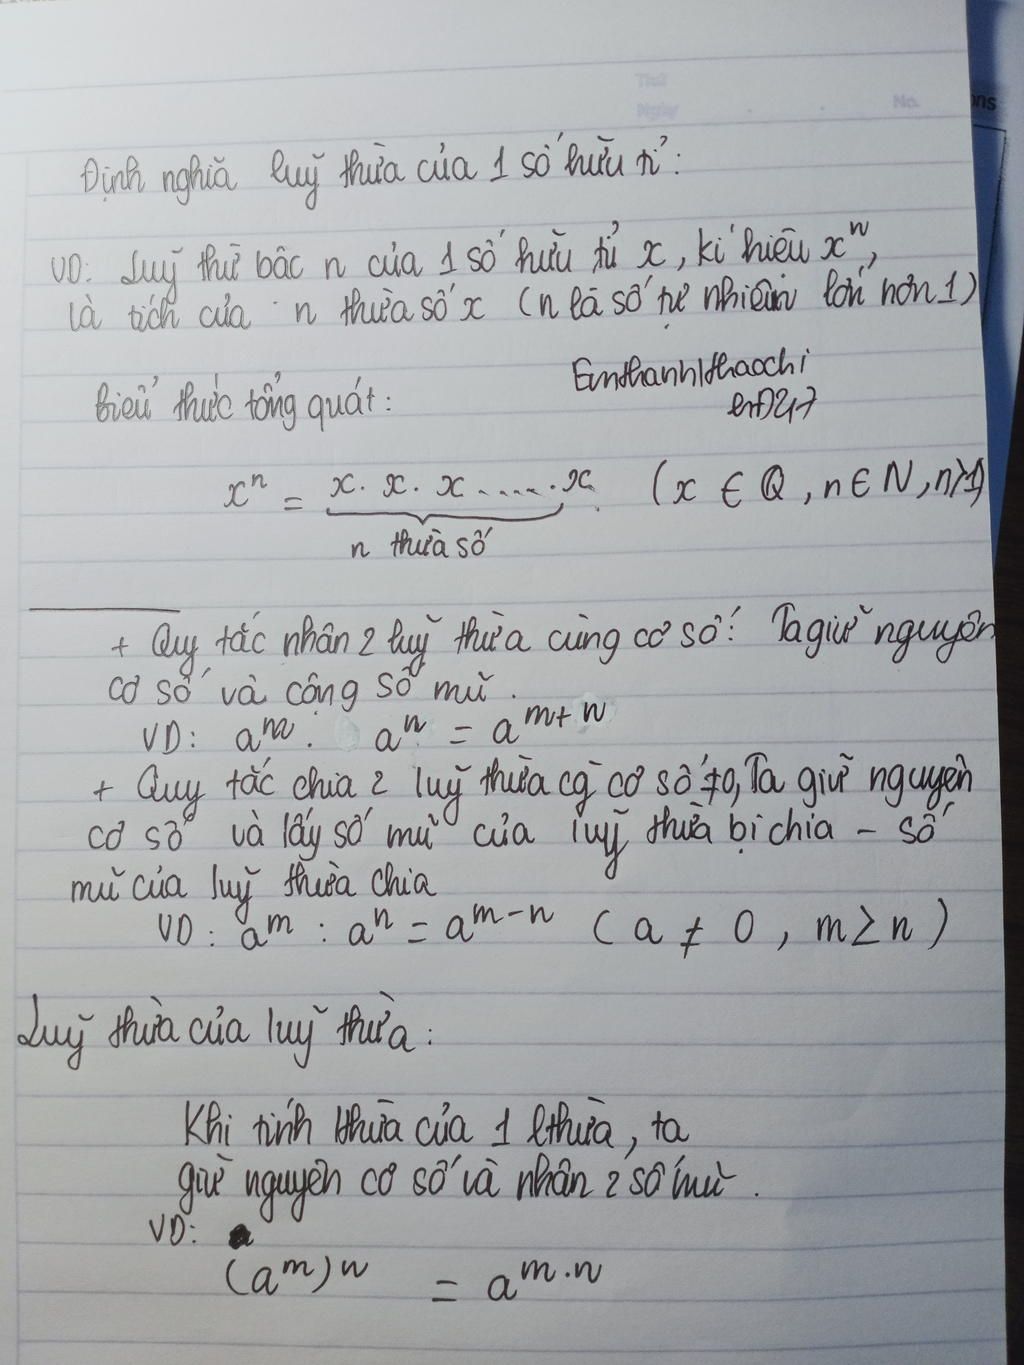 Thứ
Ngày
No.
ons
Định nghiã luỹ thừa của 1 số hữu tỉ:
VD: Luỹ thừ bâc n của 1 số hữu tỉ x, kí hiệu xⁿ,
là tích của n thừa số x (n là số tự nhiên lớn hơn 1)
biểu thức tổng quát:
xⁿ = x. x. x ...... x (x ∈ Q, n ∈ N, n>1)
n thừa số
+ Quy tắc nhân 2 luỹ thừa cùng cơ số: Ta giữ nguyên
cơ số và cộng số mũ.
VD: aᵐ. aⁿ = aᵐ⁺ⁿ
+ Quy tắc chia 2 luỹ thừa cg cơ số ≠0, Ta giữ nguyên
cơ số và lấy số mũ của luỹ thừa bị chia - số
mũ của luỹ thừa chia
VD: aᵐ : aⁿ = aᵐ⁻ⁿ (a ≠ 0, m ≥ n)
Luỹ thừa của luỹ thừa:
Khi tính lthừa của 1 lthừa, ta
giữ nguyên cơ số và nhân 2 số mũ.
VD:
(aᵐ)ⁿ = aᵐ·ⁿ